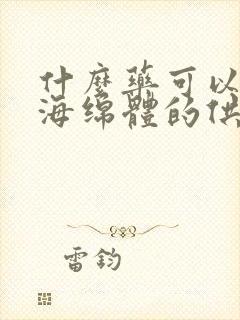 什麼藥可以
海綿體的供
雷鈞